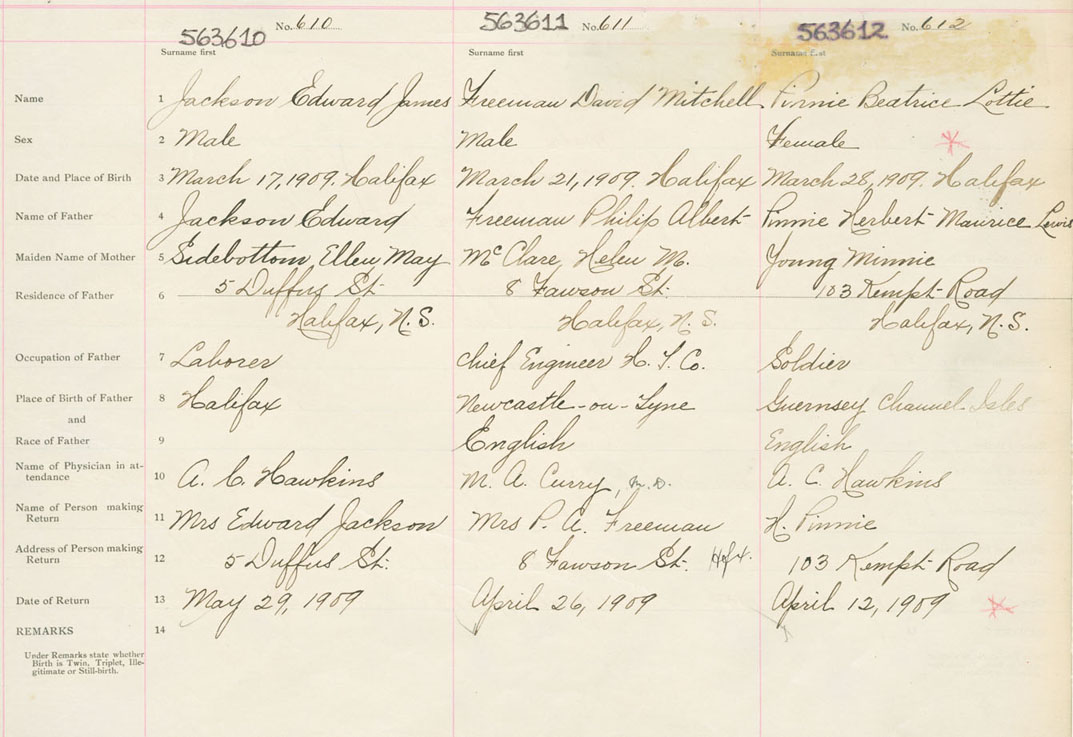 563610 No. 610 563611 No. 611 563612 No. 612
Surname first Surname first Surname first
Name 1 Jackson Edward James Freeman David Mitchell Pinnie Beatrice Lottie
Sex 2 Male Male Female
Date and Place of Birth 3 March 17, 1909. Halifax March 21, 1909. Halifax March 28, 1909. Halifax
Name of Father 4 Jackson Edward Freeman Philip Albert Pinnie Herbert Maurice Lewis
Maiden Name of Mother 5 Sidebottom, Ellen May McClare, Helen M. Young Minnie
Residence of Father 6 5 Duffus St. 8 Fawson St. 103 Kempt Road
Halifax, N.S. Halifax, N.S. Halifax, N.S.
Occupation of Father 7 Laborer Chief Engineer H. T. Co. Soldier
Place of Birth of Father 8 Halifax Newcastle-on-Tyne Guernsey Channel Isles
and
Race of Father 9 English English
Name of Physician in at-
tendance 10 A. C. Hawkins M. A. Curry, M.D. A. C. Hawkins
Name of Person making
Return 11 Mrs Edward Jackson Mrs P. A. Freeman H. Pinnie
Address of Person making
Return 12 5 Duffus St. 8 Fawson St. Hfx. 103 Kempt Road
Date of Return 13 May 29, 1909 April 26, 1909 April 12, 1909
REMARKS 14
Under Remarks state whether
Birth is Twin, Triplet, Ille-
gitimate or Still-birth.